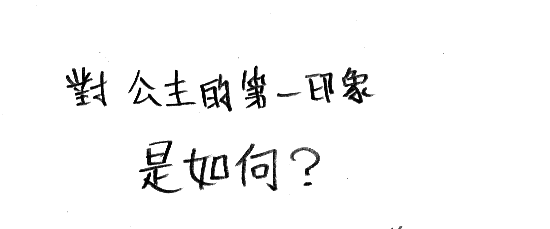 對公主的第一印象
是如何?